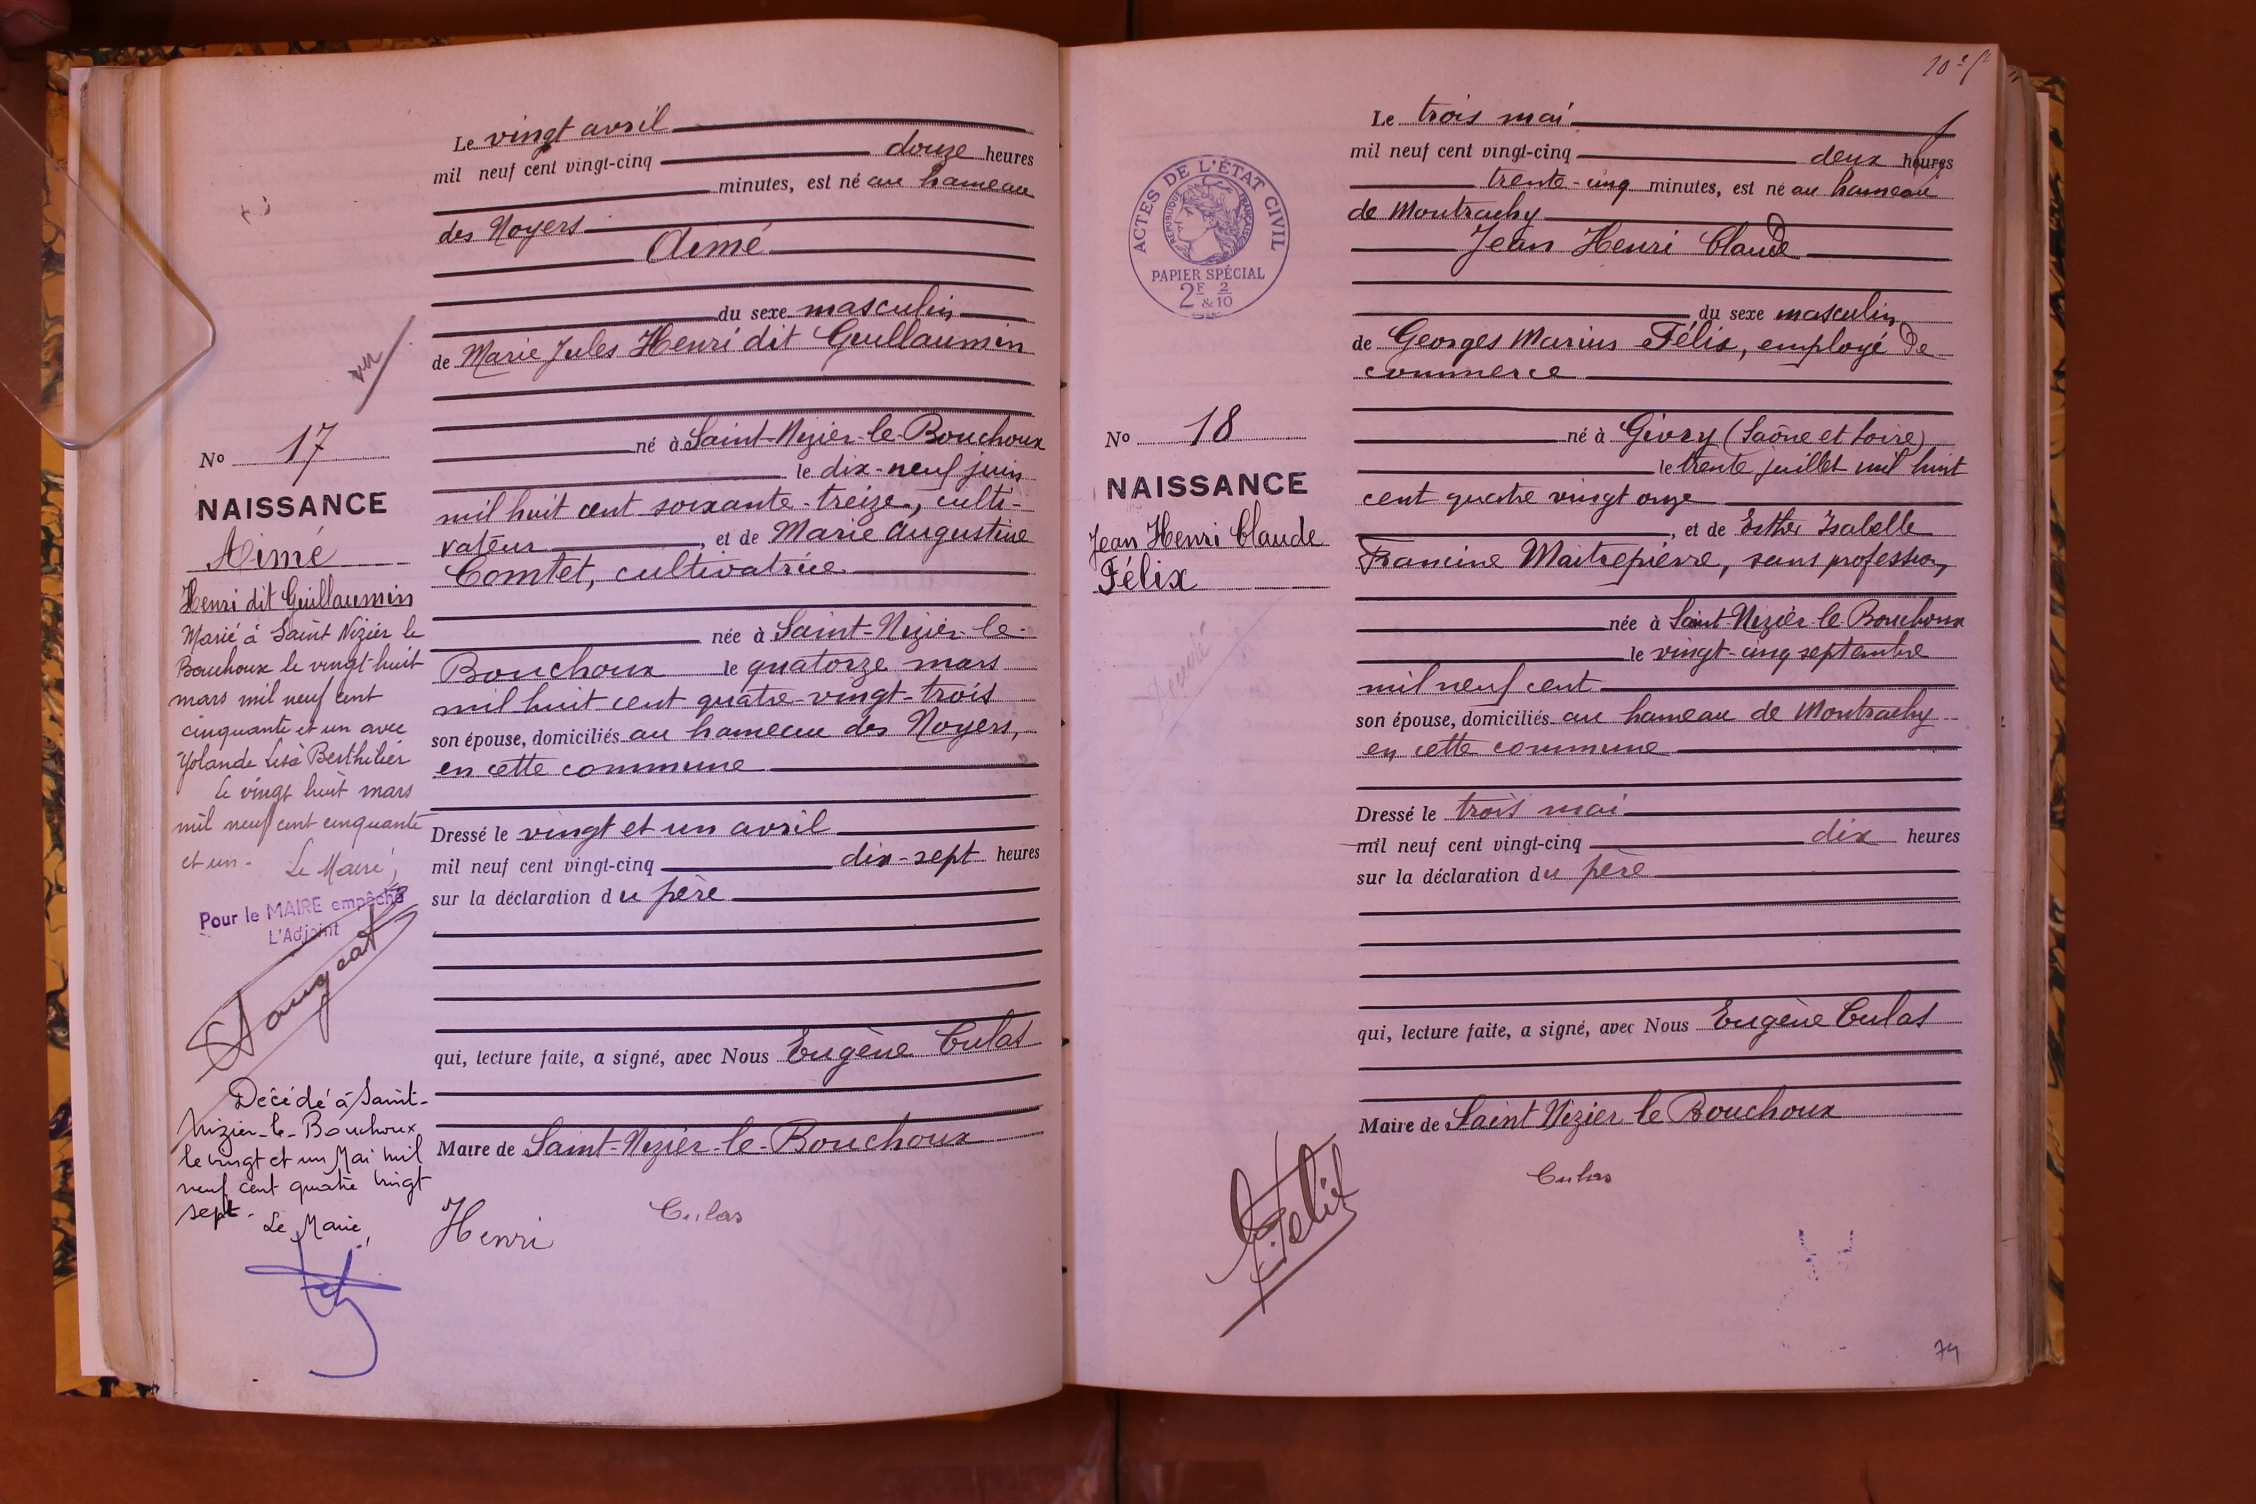 Le vingt avril
mil neuf cent vingt-cinq douze heures
minutes, est né au hameau
des Noyers
Aimé
du sexe masculin
de Marie Jules Henri dit Guillaumin
né à Saint-Nizier-le-Bouchoux
le dix-neuf juin
mil huit cent soixante-treize, culti-
vateur, et de Marie Augustine
Comtet, cultivatrice
née à Saint-Nizier-le-
Bouchoux le quatorze mars
mil huit cent quatre-vingt-trois
son épouse, domiciliés au hameau des Noyers,
en cette commune
Dressé le vingt et un avril
mil neuf cent vingt-cinq dix-sept heures
sur la déclaration du père
qui, lecture faite, a signé, avec Nous Eugène Culas
Maire de Saint-Nizier-le-Bouchoux
Henri Culas
vu
No 17
NAISSANCE
Aimé
Henri dit Guillaumin
Marié à Saint Nizier le
Bouchoux le vingt-huit
mars mil neuf cent
cinquante et un avec
Yolande Lisa Berthilier
Le vingt huit mars
mil neuf cent cinquante
et un. Le Maire,
Pour le MAIRE empêché
L'Adjoint
Décédé à Saint-
Nizier-le-Bouchoux
le vingt et un Mai mil
neuf cent quatre vingt
sept. Le Maire,
Le trois mai
mil neuf cent vingt-cinq deux heures
trente-cinq minutes, est né au hameau
de Montrachy
Jean Henri Claude
du sexe masculin
de Georges Marius Félix, employé de
commerce
né à Givry (Saône et Loire)
le trente juillet mil huit
cent quatre vingt onze
, et de Esther Isabelle
Francine Maitrepierre, sans profession,
née à Saint-Nizier-le-Bouchoux
le vingt-cinq septembre
mil neuf cent
son épouse, domiciliés au hameau de Montrachy
en cette commune
Dressé le trois mai
mil neuf cent vingt-cinq dix heures
sur la déclaration du père
qui, lecture faite, a signé, avec Nous Eugène Culas
Maire de Saint Nizier le Bouchoux
Culas
Felix
ACTES DE L'ÉTAT CIVIL
RÉPUBLIQUE FRANÇAISE
PAPIER SPÉCIAL
2F & 2/10
No 18
NAISSANCE
Jean Henri Claude
Félix